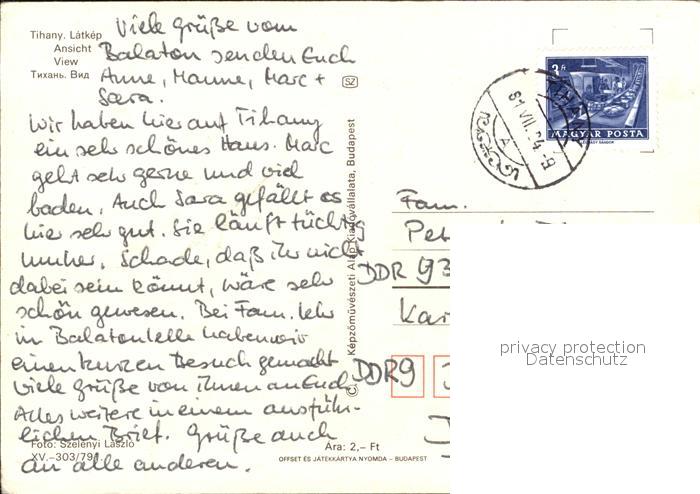 Tihany. Látkép
Ansicht
View
Тихань. Вид
Viele Grüße vom
Balaton senden Euch
Anne, Manne, Marc +
Sara.
Wir haben hier auf Tihany
ein sehr schönes Haus. Marc
geht sehr gerne und viel
baden. Auch Sara gefällt es
hier sehr gut. Sie läuft tüchtig
umher. Schade, daß ihr nicht
dabei sein könnt, wäre sehr
schön gewesen. Bei Fam.
in Balatonlelle haben wir
einen kurzen Besuch gemacht
viele Grüße von ihnen an Euch
Alles weitere in einem ausführ-
lichen Brief. Grüße auch
an alle anderen.
Foto: Szelényi László
XV.–303/791.
SZ
Képzőművészeti Alap Kiadóvállalata, Budapest
Ára: 2,– Ft
OFFSET ÉS JÁTÉKKÁRTYA NYOMDA – BUDAPEST
3 ft
MAGYAR POSTA
TIHANY
81 VII. 24.-9
A
Fam.
Pet
DDR 93
Kar
DDR 9
privacy protection
Datenschutz